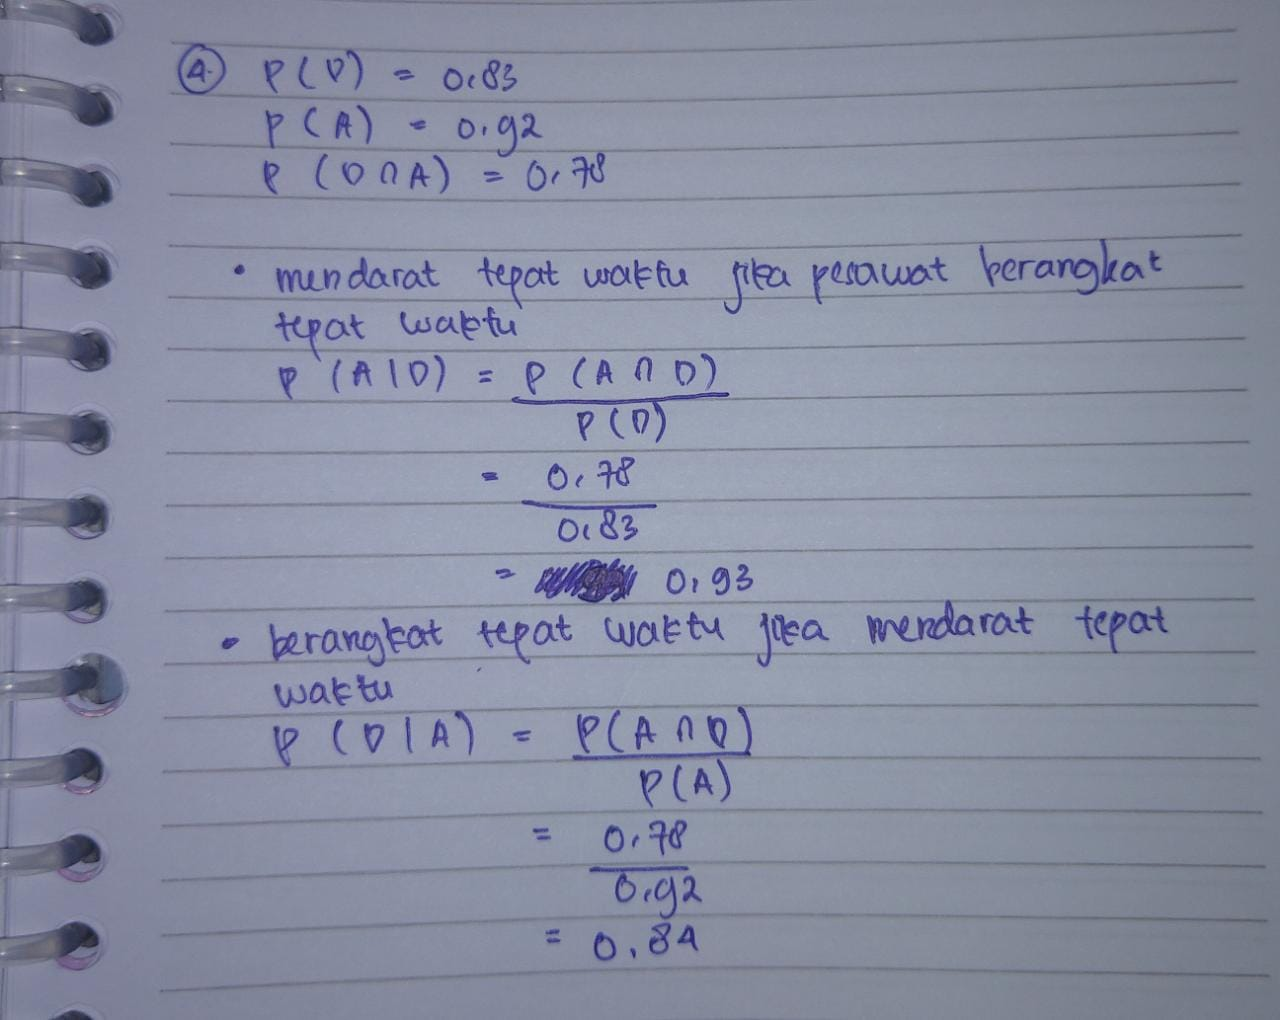 4. P(D) = 0,83
P(A) = 0,92
P(D∩A) = 0,78
• mendarat tepat waktu jika pesawat berangkat
tepat waktu
P(A|D) = P(A∩D)
P(D)
= 0,78
0,83
= 0,93
• berangkat tepat waktu jika mendarat tepat
waktu
P(D|A) = P(A∩D)
P(A)
= 0,78
0,92
= 0,84